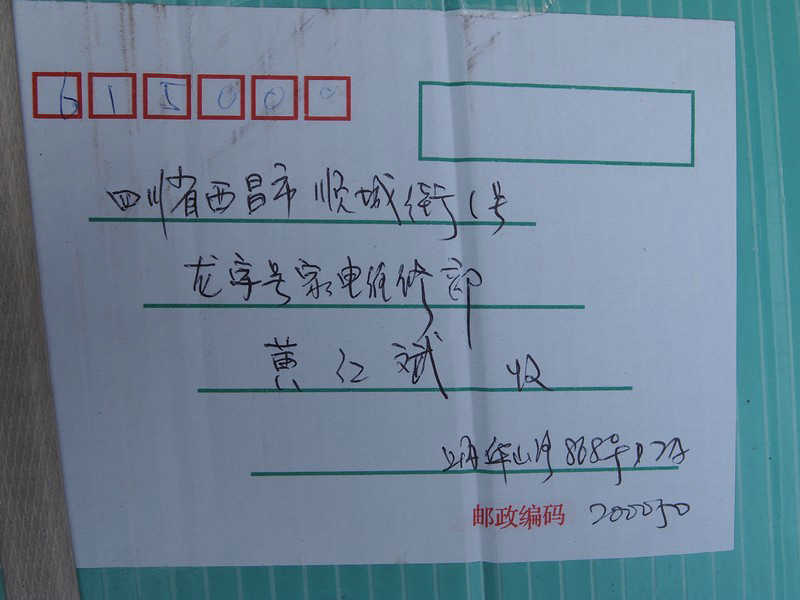 615000
四川省西昌市顺城街1号
龙字号家电维修部
黄红斌 收
上海华山路868号
邮政编码 200050